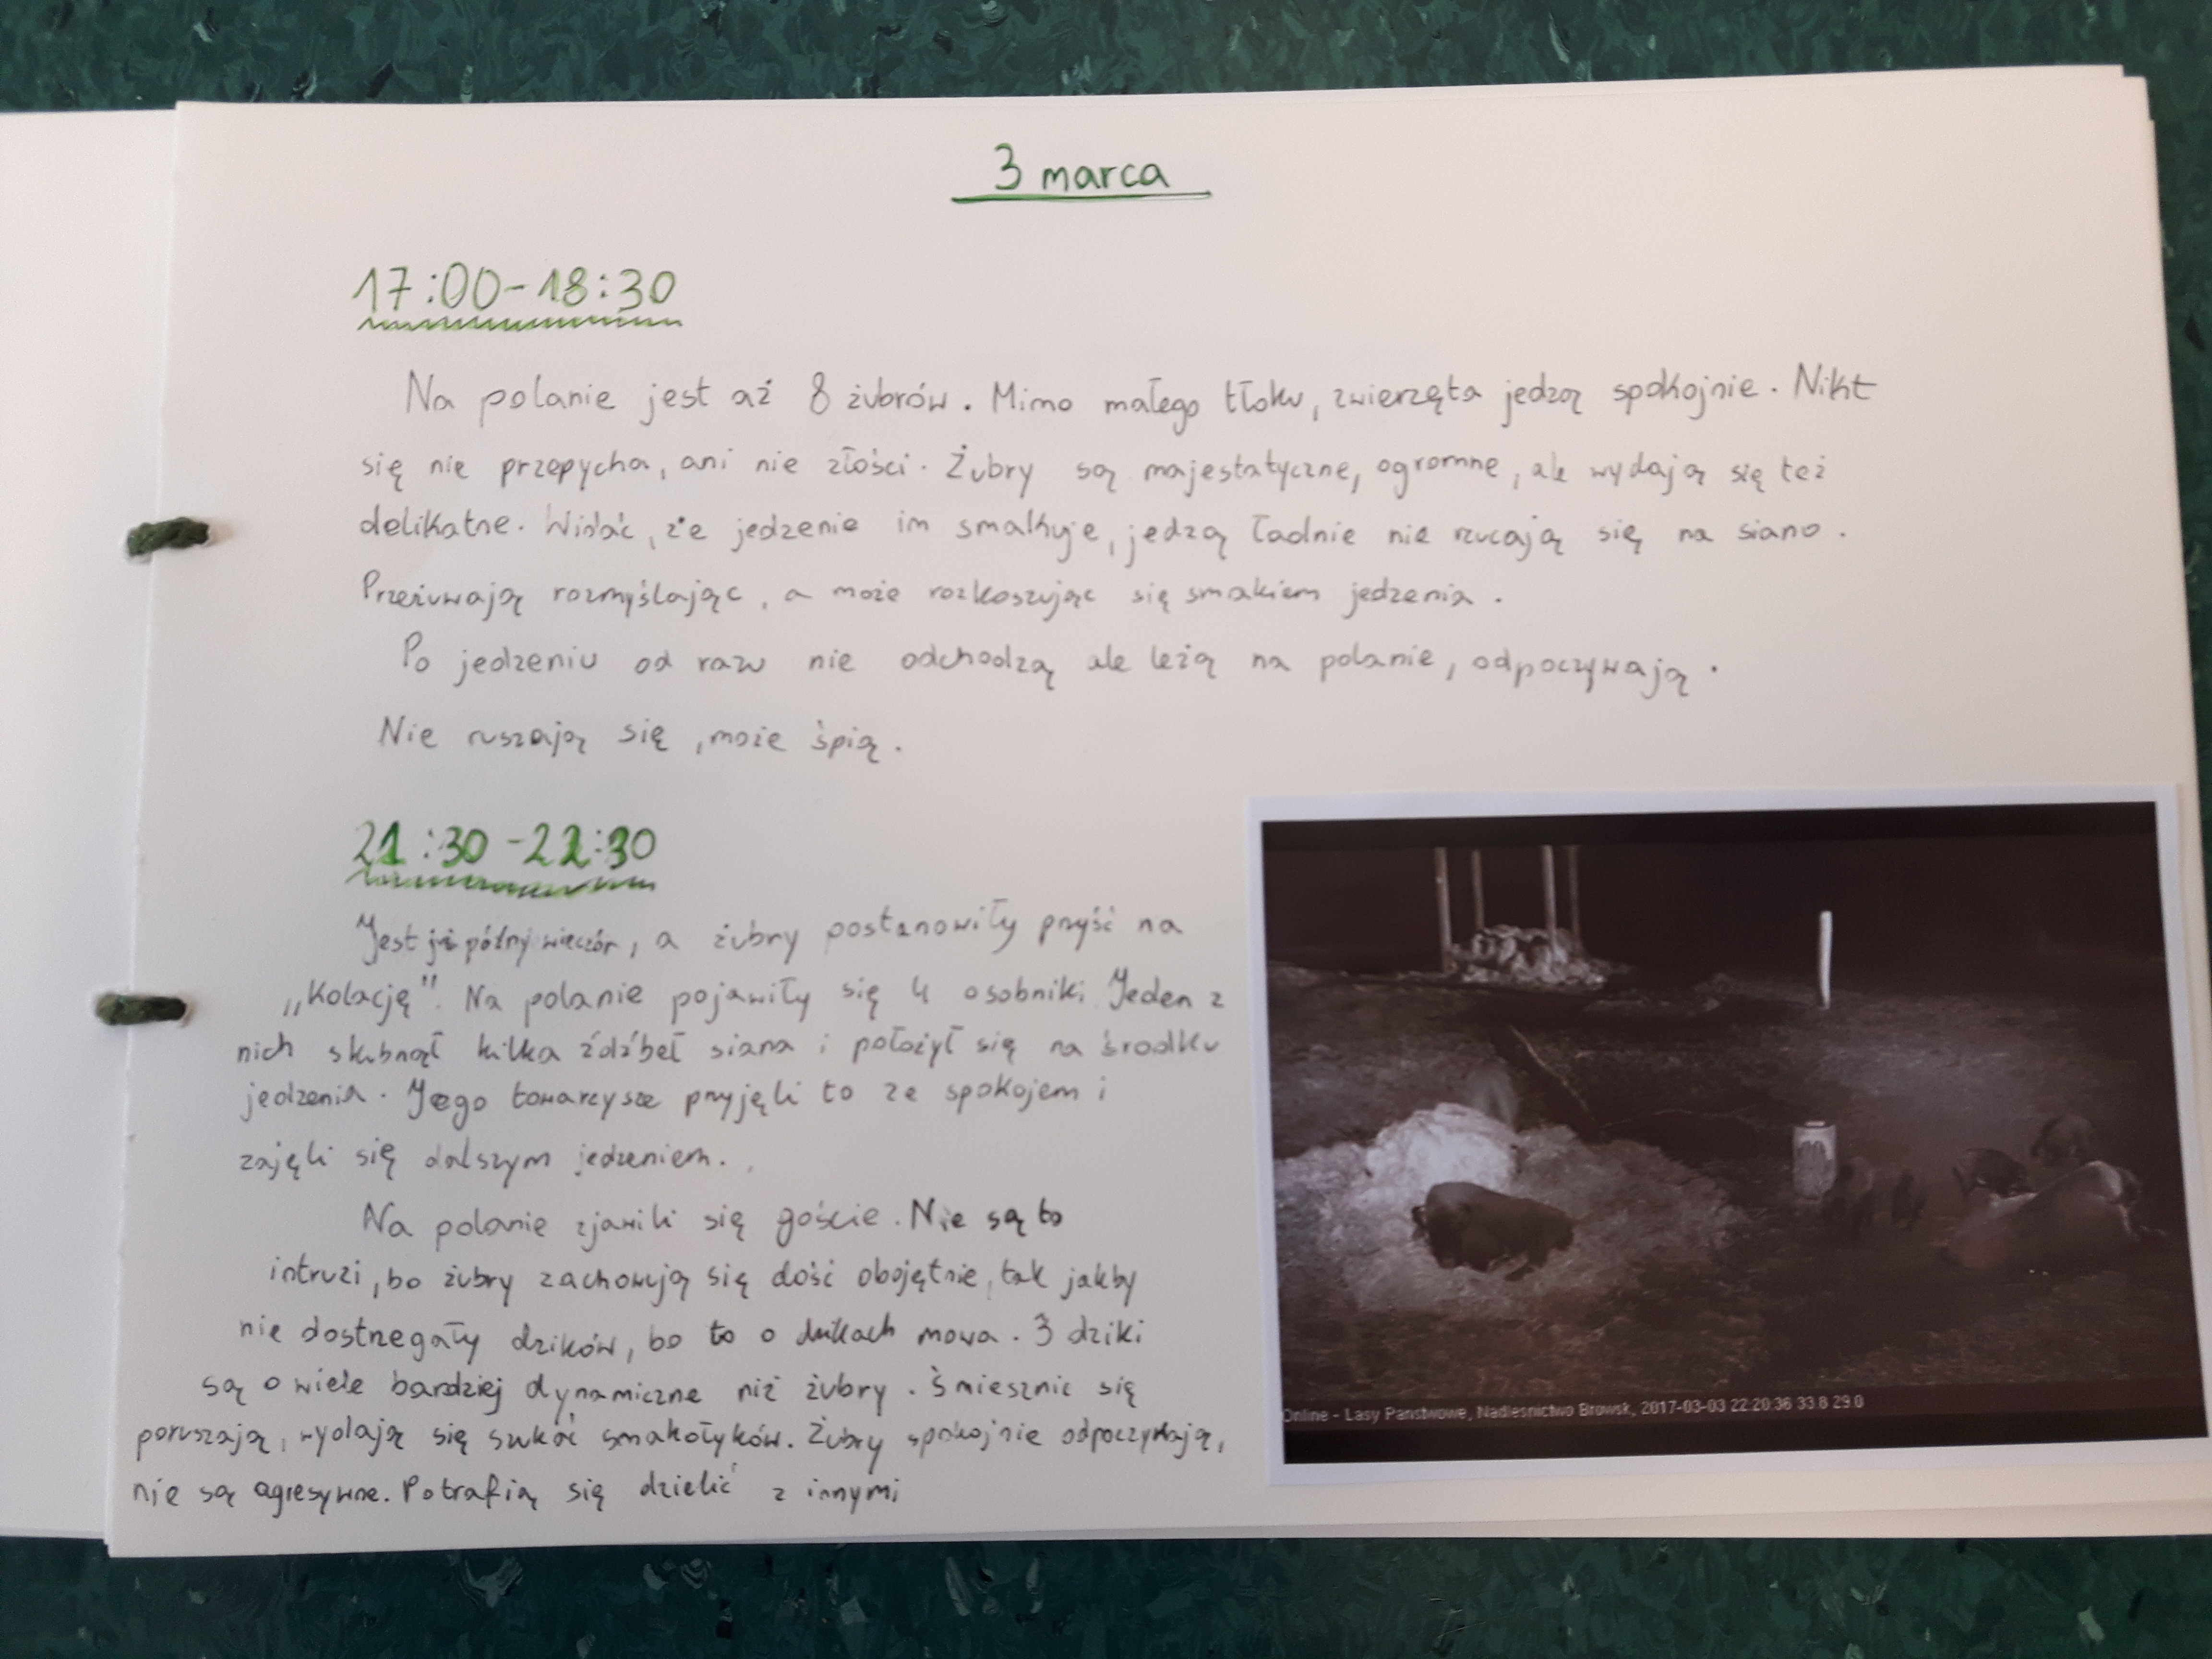 3 marca
17:00-18:30
Na polanie jest aż 8 żubrów. Mimo małego tłoku, zwierzęta jedzą spokojnie. Nikt
się nie przepycha, ani nie złości. Żubry są majestatyczne, ogromne, ale wydają się też
delikatne. Widać, że jedzenie im smakuje, jedzą ładnie nie rzucają się na siano.
Przeżuwają rozmyślając, a może rozkoszując się smakiem jedzenia.
Po jedzeniu od razu nie odchodzą ale leżą na polanie, odpoczywają.
Nie ruszają się, może śpią.
21:30-22:30
Jest już późny wieczór, a żubry postanowiły przyść na
„Kolację". Na polanie pojawiły się 4 osobniki. Jeden z
nich skubnął kilka źdźbeł siana i położył się na środku
jedzenia. Jego towarzysze przyjęli to ze spokojem i
zajęli się dalszym jedzeniem.
Na polanie zjawili się goście. Nie są to
intruzi, bo żubry zachowują się dość obojętnie, tak jakby
nie dostrzegały dzików, bo to o dzikach mowa. 3 dziki
są o wiele bardziej dynamiczne niż żubry. Śmiesznie się
poruszają, wydają się szukać smakołyków. Żubry spokojnie odpoczywają,
nie są agresywne. Potrafią się dzielić z innymi
Online - Lasy Państwowe, Nadleśnictwo Browsk, 2017-03-03 22:20:36 33.8 29.0